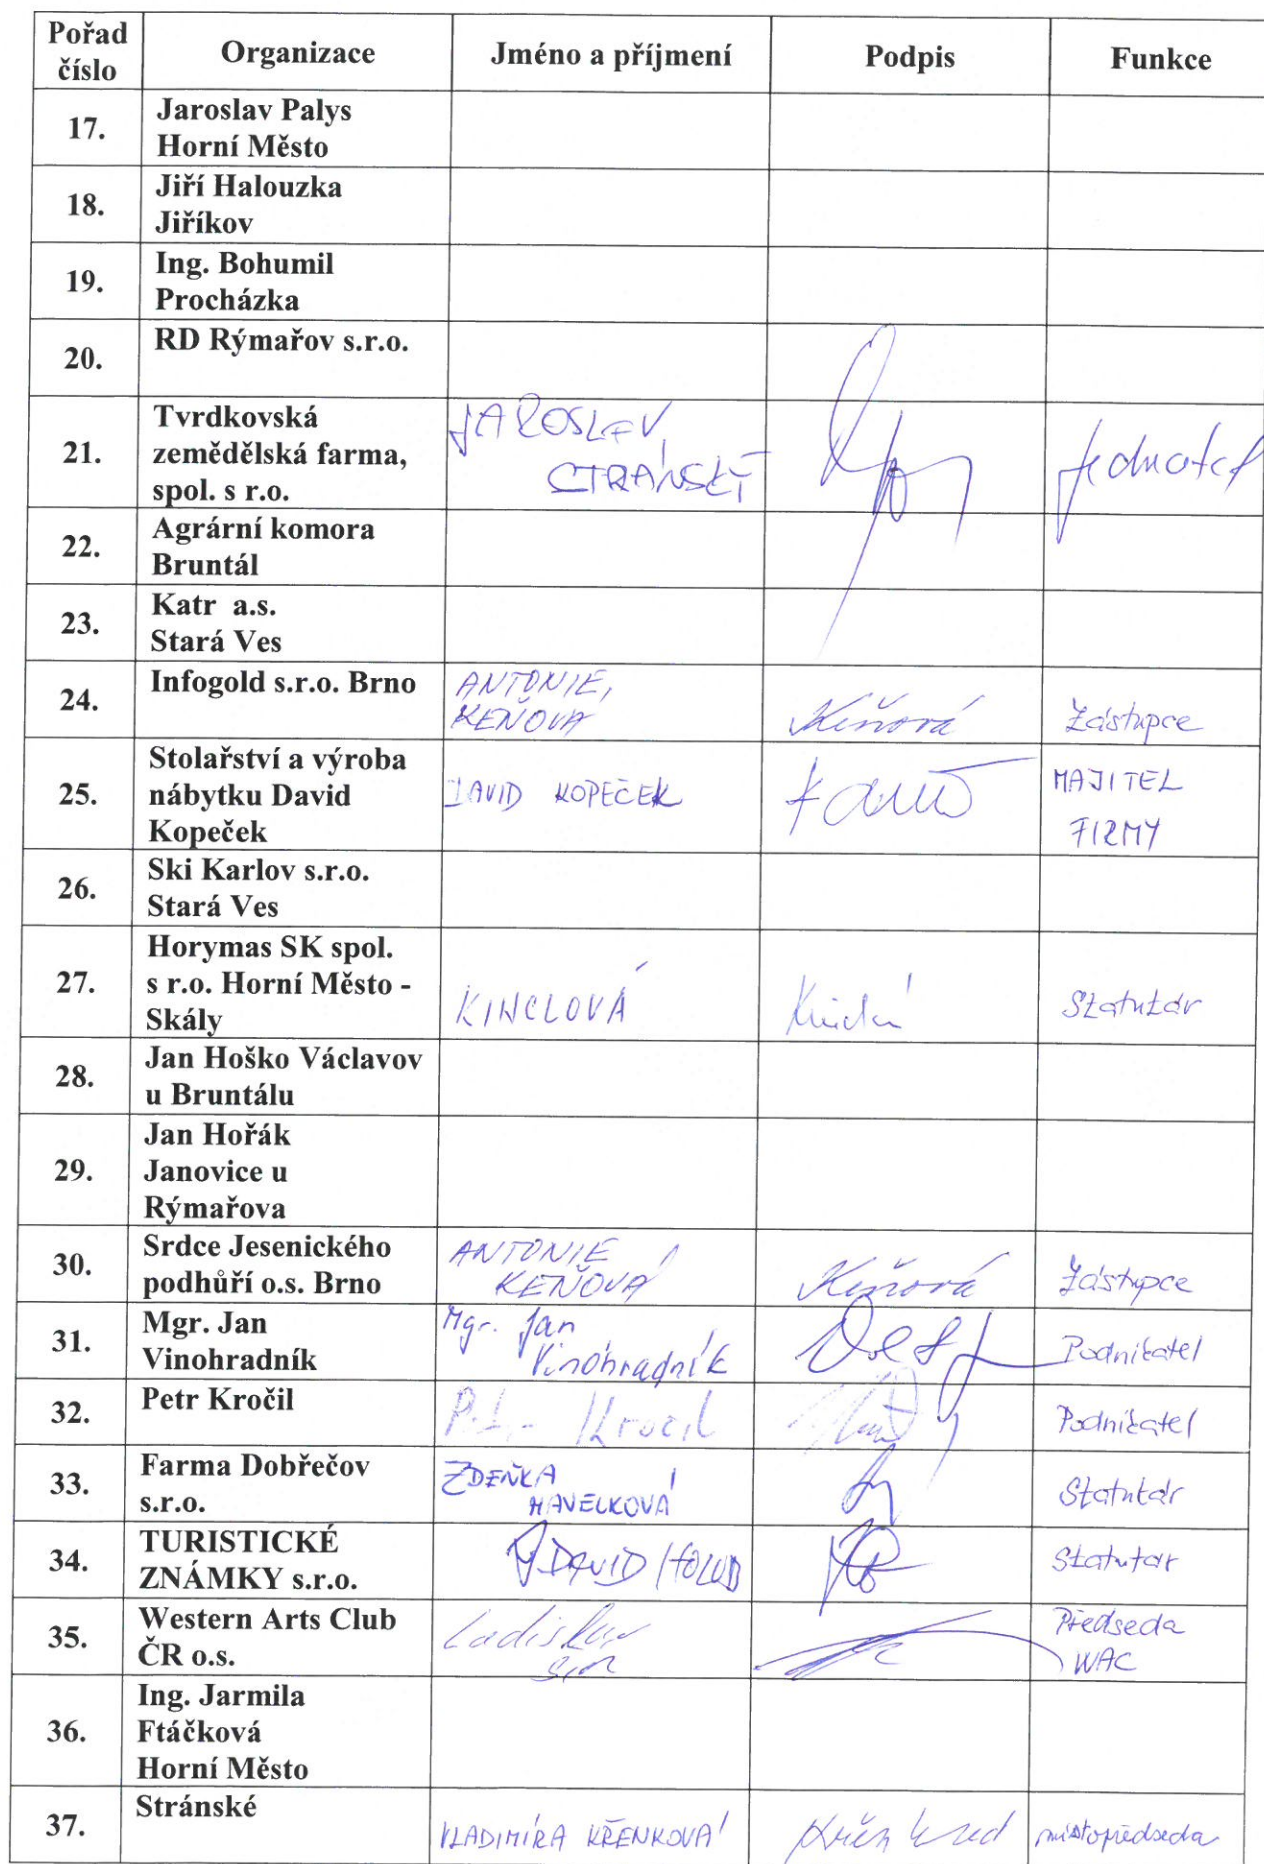 Pořad číslo Organizace Jméno a příjmení Podpis Funkce
17. Jaroslav Palys
Horní Město
18. Jiří Halouzka
Jiříkov
19. Ing. Bohumil
Procházka
20. RD Rýmařov s.r.o.
21. Tvrdkovská
zemědělská farma,
spol. s r.o.
JAROSLAV
STRÁNSKÝ
jednatel
22. Agrární komora
Bruntál
23. Katr a.s.
Stará Ves
24. Infogold s.r.o. Brno
ANTONIE,
KEŇOVA
Keňová
Zástupce
25. Stolařství a výroba
nábytku David
Kopeček
DAVID KOPEČEK
MAJITEL
FIRMY
26. Ski Karlov s.r.o.
Stará Ves
27. Horymas SK spol.
s r.o. Horní Město -
Skály
KINCLOVÁ
Statutár
28. Jan Hoško Václavov
u Bruntálu
29. Jan Hořák
Janovice u
Rýmařova
30. Srdce Jesenického
podhůří o.s. Brno
ANTONIE
KEŇOVÁ
Keňová
Zástupce
31. Mgr. Jan
Vinohradník
Mgr. Jan
Vinohradník
Podnikatel
32. Petr Kročil
Kročil
Podnikatel
33. Farma Dobřečov
s.r.o.
ZDEŇKA
HAVELKOVÁ
Statutár
34. TURISTICKÉ
ZNÁMKY s.r.o.
DAVID HOLUB
Statutar
35. Western Arts Club
ČR o.s.
Ladislav
Předseda
WAC
36. Ing. Jarmila
Ftáčková
Horní Město
37. Stránské
VLADIMÍRA KŘENKOVÁ
místopředseda